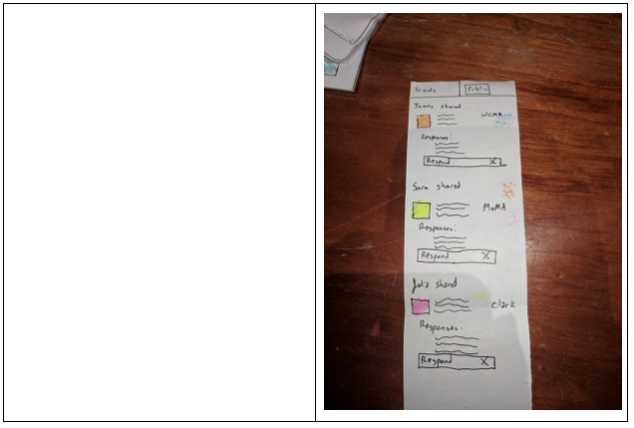 Friends Public
James shared
WCMA
Responses:
Respond X
Sara shared
MoMA
Responses:
Respond X
Julia shared
Clark
Responses:
Respond X